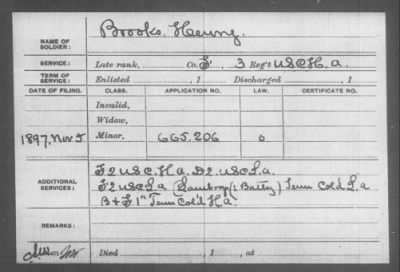 Brooks, Henry.
NAME OF SOLDIER:
SERVICE: Late rank, Co. F, 3 Reg't U.S.C.H.A.
TERM OF SERVICE: Enlisted , 1 Discharged , 1
DATE OF FILING. CLASS. APPLICATION NO. LAW. CERTIFICATE NO.
Invalid,
Widow,
1897, Nov 5 Minor, 665.206 o
ADDITIONAL SERVICES:
F 2 U.S.C.H.a. D 2 U.S.C.L.a.
F 2 U.S.C.L.a (1 Batty) Tenn Col'd L.a
B + F 1" Tenn Col'd H.a.
REMARKS:
Died , 1 , at